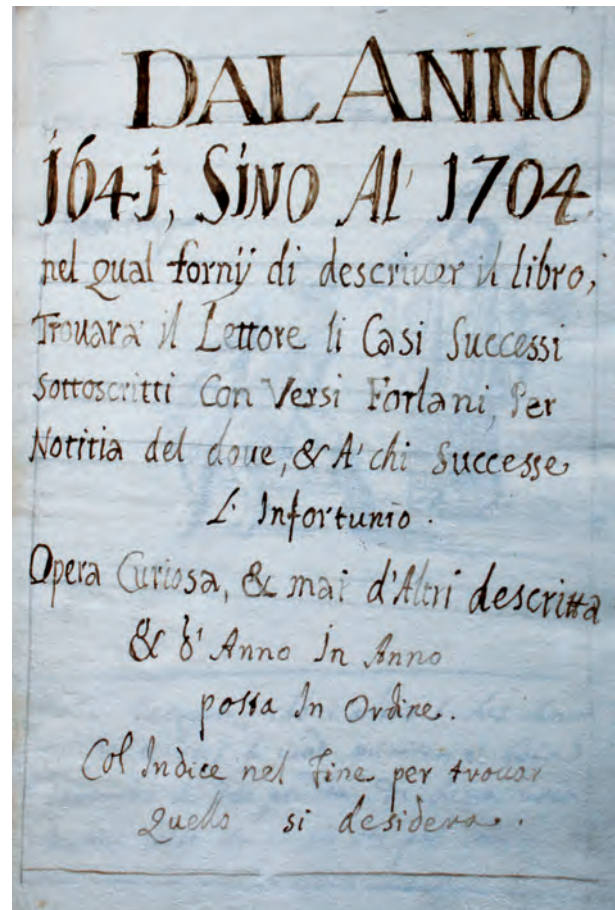 DAL ANNO
1641, SINO AL' 1704
nel qual fornÿ di descriver il libro,
Trouarà il Lettore li Casi Successi
Sottoscritti Con Versi Forlani, Per
Notitia del doue, & A' chi Successe
L' Infortunio.
Opera Curiosa, & mai d'Altri descritta
& d' Anno In Anno
posta In Ordine.
Col Indice nel Fine per trouar
Quello si desidera.